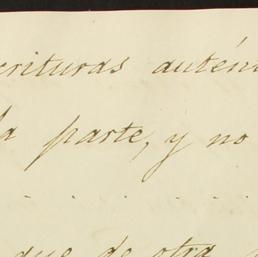 crituras autén
la parte, y no
. . . . . .
que de otra